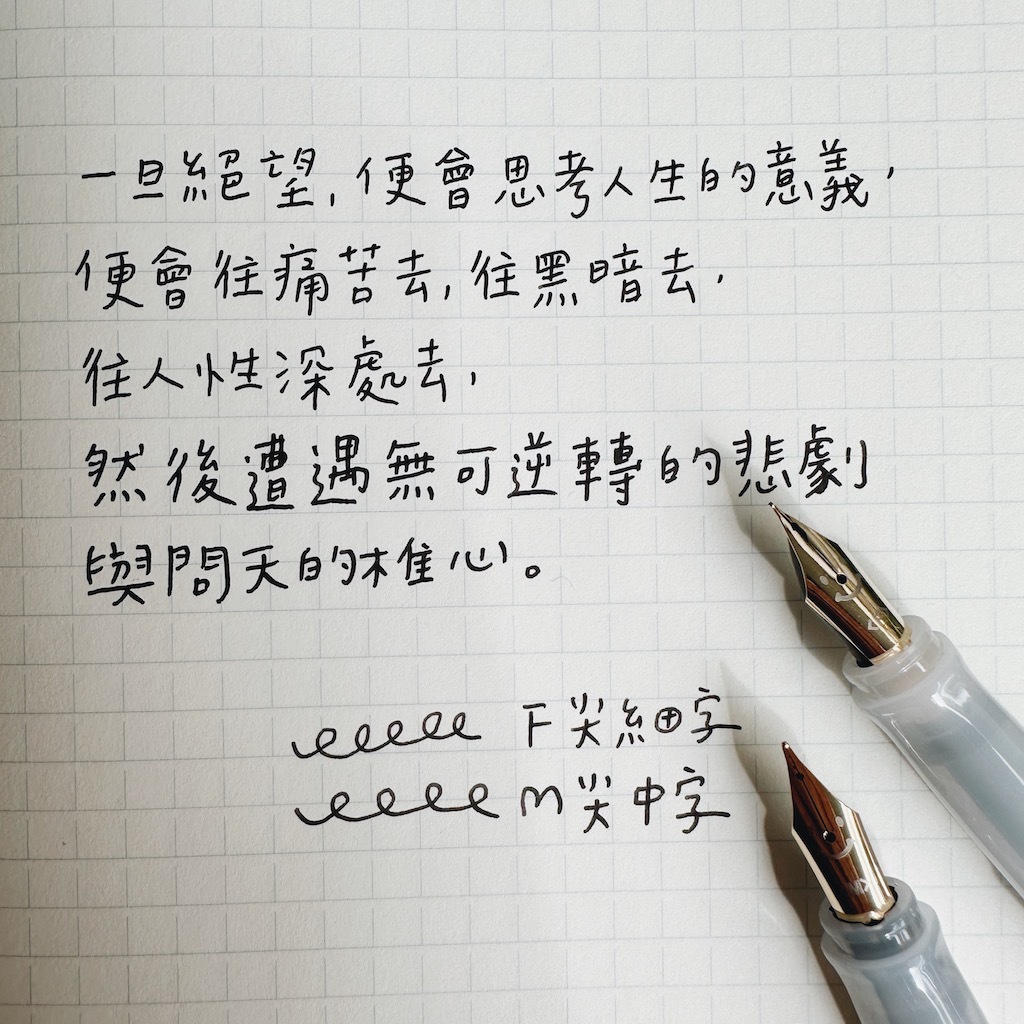 一旦絕望,便會思考人生的意義,
便會往痛苦去,往黑暗去,
往人性深處去,
然後遭遇無可逆轉的悲劇
與問天的椎心。
F尖細字
M尖中字